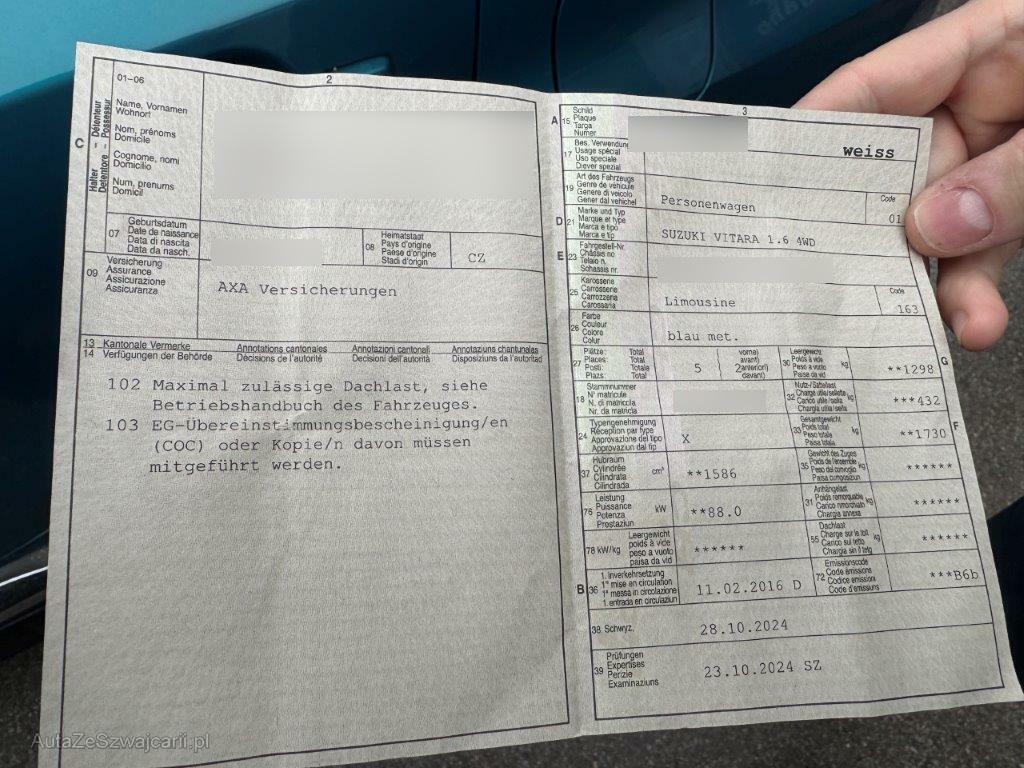 2
01-06
C
Halter - Détenteur
Detentore - Possessur
Name, Vornamen
Wohnort
Nom, prénoms
Domicile
Cognome, nomi
Domicilio
Num, prenums
Domicil
07
Geburtsdatum
Date de naissance
Data di nascita
Data da nasch.
08
Heimatstaat
Pays d'origine
Paese d'origine
Stadi d'origin
CZ
09
Versicherung
Assurance
Assicurazione
Assicuranza
AXA Versicherungen
13 Kantonale Vermerke Annotations cantonales Annotazioni cantonali Annotaziuns chantunalas
14 Verfügungen der Behörde Décisions de l'autorité Decisioni dell'autorità Disposiziuns da l'autoritad
102 Maximal zulässige Dachlast, siehe
Betriebshandbuch des Fahrzeuges.
103 EG-Übereinstimmungsbescheinigung/en
(COC) oder Kopie/n davon müssen
mitgeführt werden.
3
A 15
Schild
Plaque
Targa
Numer
weiss
17
Bes. Verwendung
Usage spécial
Uso speciale
Diever spezial
19
Art des Fahrzeugs
Genre de véhicule
Genere di veicolo
Gener dal vehichel
Personenwagen
Code
01
D 21
Marke und Typ
Marque et type
Marca e tipo
Marca e tip
SUZUKI VITARA 1.6 4WD
E 23
Fahrgestell-Nr.
Châssis no
Telaio n.
Schassis nr.
25
Karosserie
Carrosserie
Carrozzeria
Carossaria
Limousine
Code
163
26
Farbe
Couleur
Colore
Colur
blau met.
27
Plätze: Total
Places: Total
Posti: Totale
Plazs: Total
5
vorne)
avant)
2anteriori)
davant)
30
Leergewicht
Poids à vide
Peso a vuoto
Paisa da vid
kg
**1298
G
18
Stammnummer
N° matricule
N. di matricola
Nr. da matricla
32
Nutz-/Sattellast
Charge utile/sellette
Carico utile/sella
Chargia utila/sella
kg
***432
24
Typengenehmigung
Réception par type
Approvazione del tipo
Approvaziun dal tip
X
33
Gesamtgewicht
Poids total
Peso totale
Paisa totala
kg
**1730
F
37
Hubraum
Cylindrée
Cilindrata
Cilindrada
cm³
**1586
35
Gewicht des Zuges
Poids de l'ensemble
Peso del convoglio
Paisa cumposiziun
kg
******
76
Leistung
Puissance
Potenza
Prestaziun
kW
**88.0
31
Anhängelast
Poids remorquable
Carico rimorchiato
Chargia annexa
kg
******
78 kW/kg
Leergewicht
poids à vide
peso a vuoto
paisa da vid
******
55
Dachlast
Charge sur le toit
Carico sul tetto
Chargia sin il tetg
kg
******
B 36
1. Inverkehrsetzung
1re mise en circulation
1a messa in circolazione
1. entrada en circulaziun
11.02.2016 D
72
Emissionscode
Code émissions
Codice emissioni
Code d'emissiuns
***B6b
38 Schwyz,
28.10.2024
39
Prüfungen
Expertises
Perizie
Examinaziuns
23.10.2024 SZ
AutaZeSzwajcarii.pl